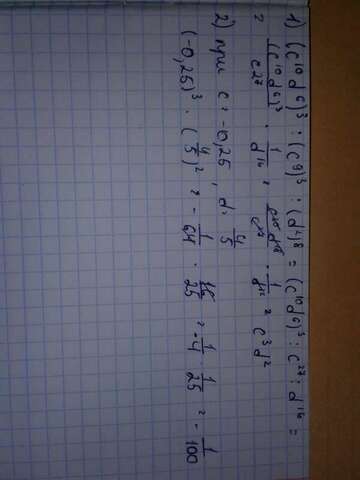 1) (c¹⁰d⁶)³ : (c⁹)³ : (d²)⁸ = (c¹⁰d⁶)³ : c²⁷ : d¹⁶ =
= (c¹⁰d⁶)³/c²⁷ · 1/d¹⁶ = c³⁰d¹⁸/c²⁷ · 1/d¹⁶ = c³d²
2) при c = -0,25, d = 4/5
(-0,25)³ · (4/5)² = - 1/64 · 16/25 = - 1/4 · 1/25 = - 1/100